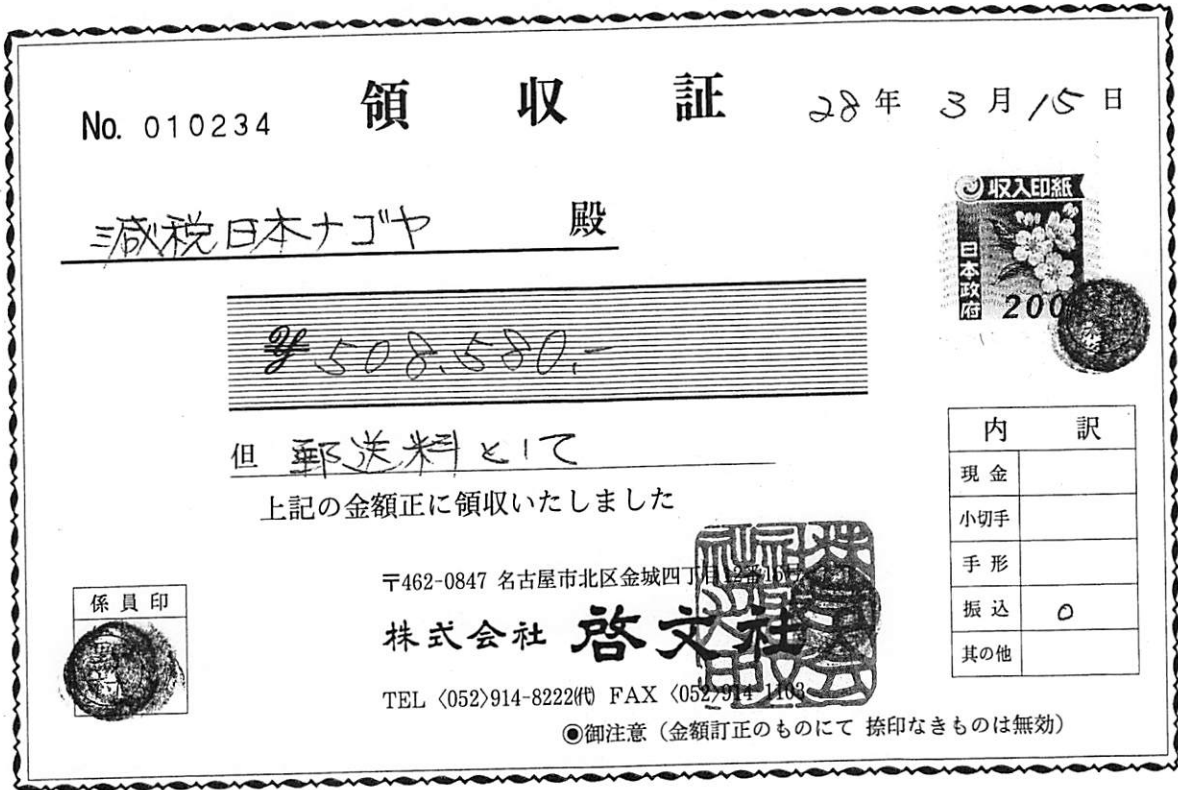 No. 010234
領収証
28年 3月15日
減税日本ナゴヤ 殿
収入印紙
日本政府
200
¥508,580.-
但 郵送料として
上記の金額正に領収いたしました
内訳
現金
小切手
手形
振込 ○
其の他
係員印
〒462-0847 名古屋市北区金城四丁目12番
株式会社 啓文社
TEL〈052〉914-8222㈹ FAX〈052〉914-1103
◉御注意(金額訂正のものにて 捺印なきものは無効)